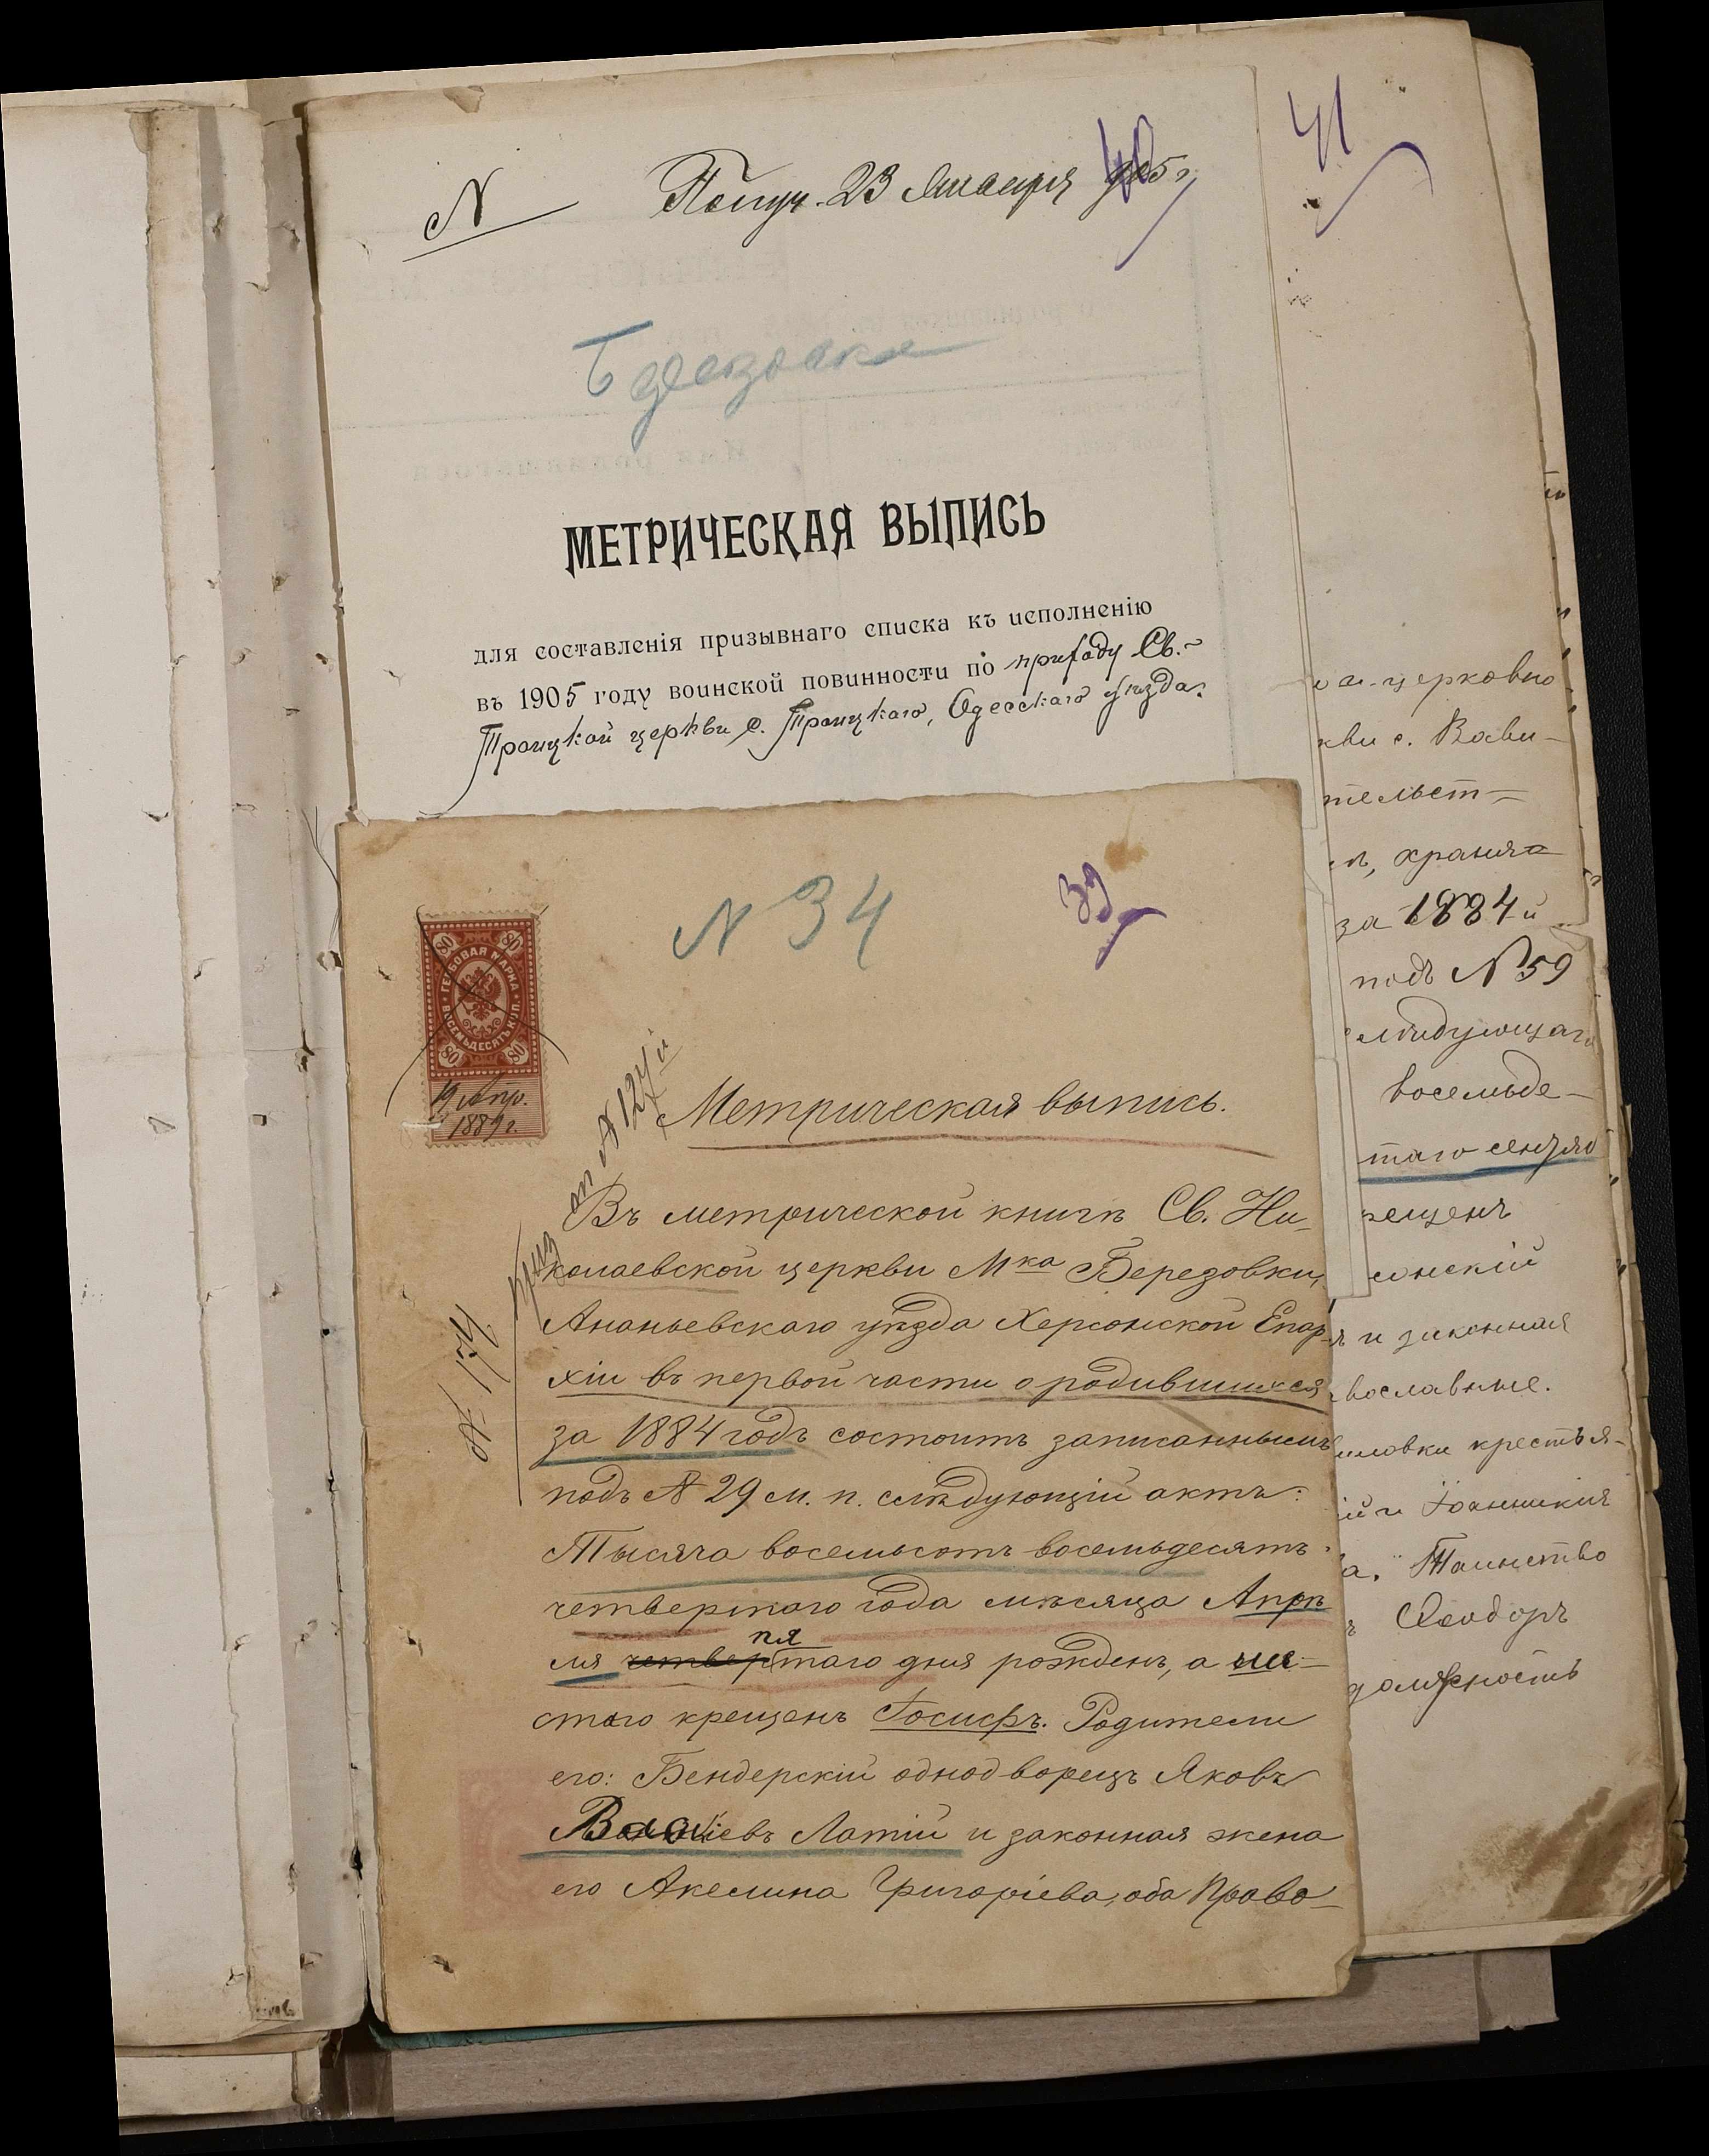 N
Получ. 23 Января 905 г.
40
41
Березовка
МЕТРИЧЕСКАЯ ВЫПИСЬ
для составленія призывнаго списка къ исполненію
въ 1905 году воинской повинности по приходу Св.-
Троицкой церкви с. Троицкаго, Одесскаго уѣзда.
N 34
39
80 80
ГЕРБОВАЯ МАРКА
ВОСЕМЬДЕСЯТЪ КОП.
80 80
19 Апр.
1889 г.
Метрическая выпись.
Въ метрической книгѣ Св. Ни-
колаевской церкви Мка Березовки,
Ананьевскаго уѣзда Херсонской Епар-
хіи въ первой части о родившихся
за 1884 годъ состоитъ записаннымъ
подъ № 29 м. п. слѣдующій актъ:
Тысяча восемьсотъ восемьдесятъ
четвертаго года мѣсяца Апрѣ
ля пятаго дня рожденъ, а ше-
стаго крещенъ Іосифъ. Родители
его: Бендерскій однодворецъ Яковъ
Латій и законная жена
его Акелина Григоріева, оба Право-
церковно
кви с.
тельст=
хранящ
за 1884 й
подъ N 59
слѣдующаго
восемьде-
таго сентяб
рещенъ
сонскій
и законная
вославные.
иловки крестья-
Іоанникія
а." Таинство
Ѳеодоръ
должность